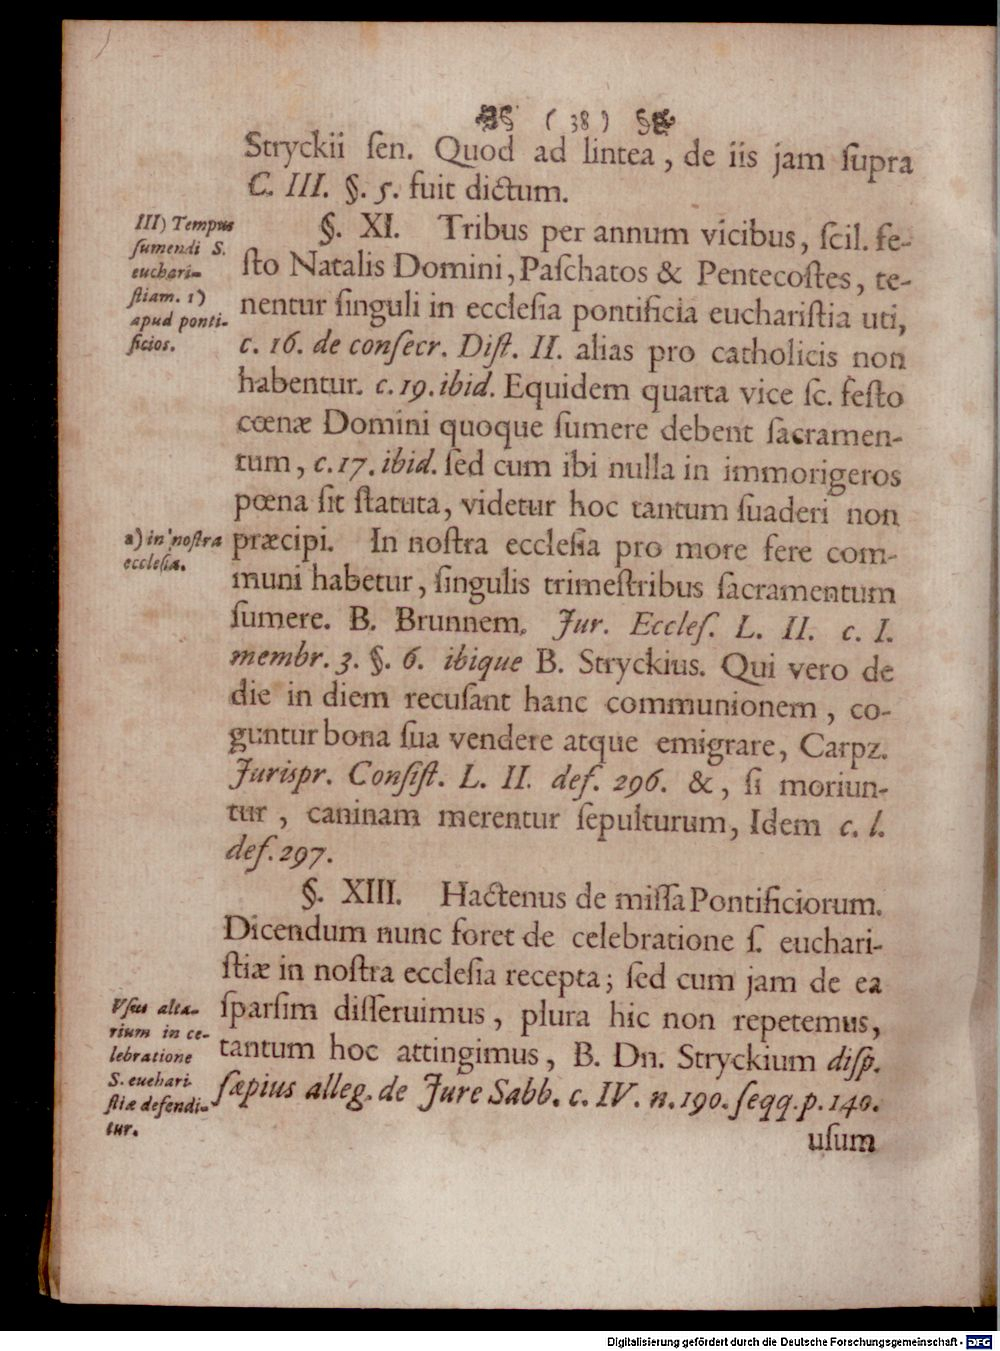 ( 38 )
Stryckii ſen. Quod ad lintea, de iis jam ſupra
C. III. §. 5. fuit dictum.
III) Tempus
ſumendi S.
euchari-
ſtiam. 1)
apud ponti-
ficios.
§. XI. Tribus per annum vicibus, ſcil. fe-
ſto Natalis Domini, Paſchatos & Pentecoſtes, te-
nentur ſinguli in eccleſia pontificia euchariſtia uti,
c. 16. de conſecr. Diſt. II. alias pro catholicis non
habentur. c. 19. ibid. Equidem quarta vice ſc. feſto
cœnæ Domini quoque ſumere debent ſacramen-
tum, c. 17. ibid. ſed cum ibi nulla in immorigeros
pœna ſit ſtatuta, videtur hoc tantum ſuaderi non
2) in noſtra
eccleſia.
præcipi. In noſtra eccleſia pro more fere com-
muni habetur, ſingulis trimeſtribus ſacramentum
ſumere. B. Brunnem. Jur. Eccleſ. L. II. c. I.
membr. 3. §. 6. ibique B. Stryckius. Qui vero de
die in diem recuſant hanc communionem, co-
guntur bona ſua vendere atque emigrare, Carpz.
Jurispr. Conſiſt. L. II. def. 296. &, ſi moriun-
tur, caninam merentur ſepulturum, Idem c. l.
def. 297.
§. XIII. Hactenus de miſſa Pontificiorum.
Dicendum nunc foret de celebratione ſ. euchari-
ſtiæ in noſtra eccleſia recepta; ſed cum jam de ea
Vſus alta-
rium in ce-
lebratione
S. euchari
ſtiæ defendi-
tur.
ſparſim diſſeruimus, plura hic non repetemus,
tantum hoc attingimus, B. Dn. Stryckium diſp.
ſæpius alleg. de Jure Sabb. c. IV. n. 190. ſeqq. p. 140.
uſum
Digitalisierung gefördert durch die Deutsche Forschungsgemeinschaft - DFG